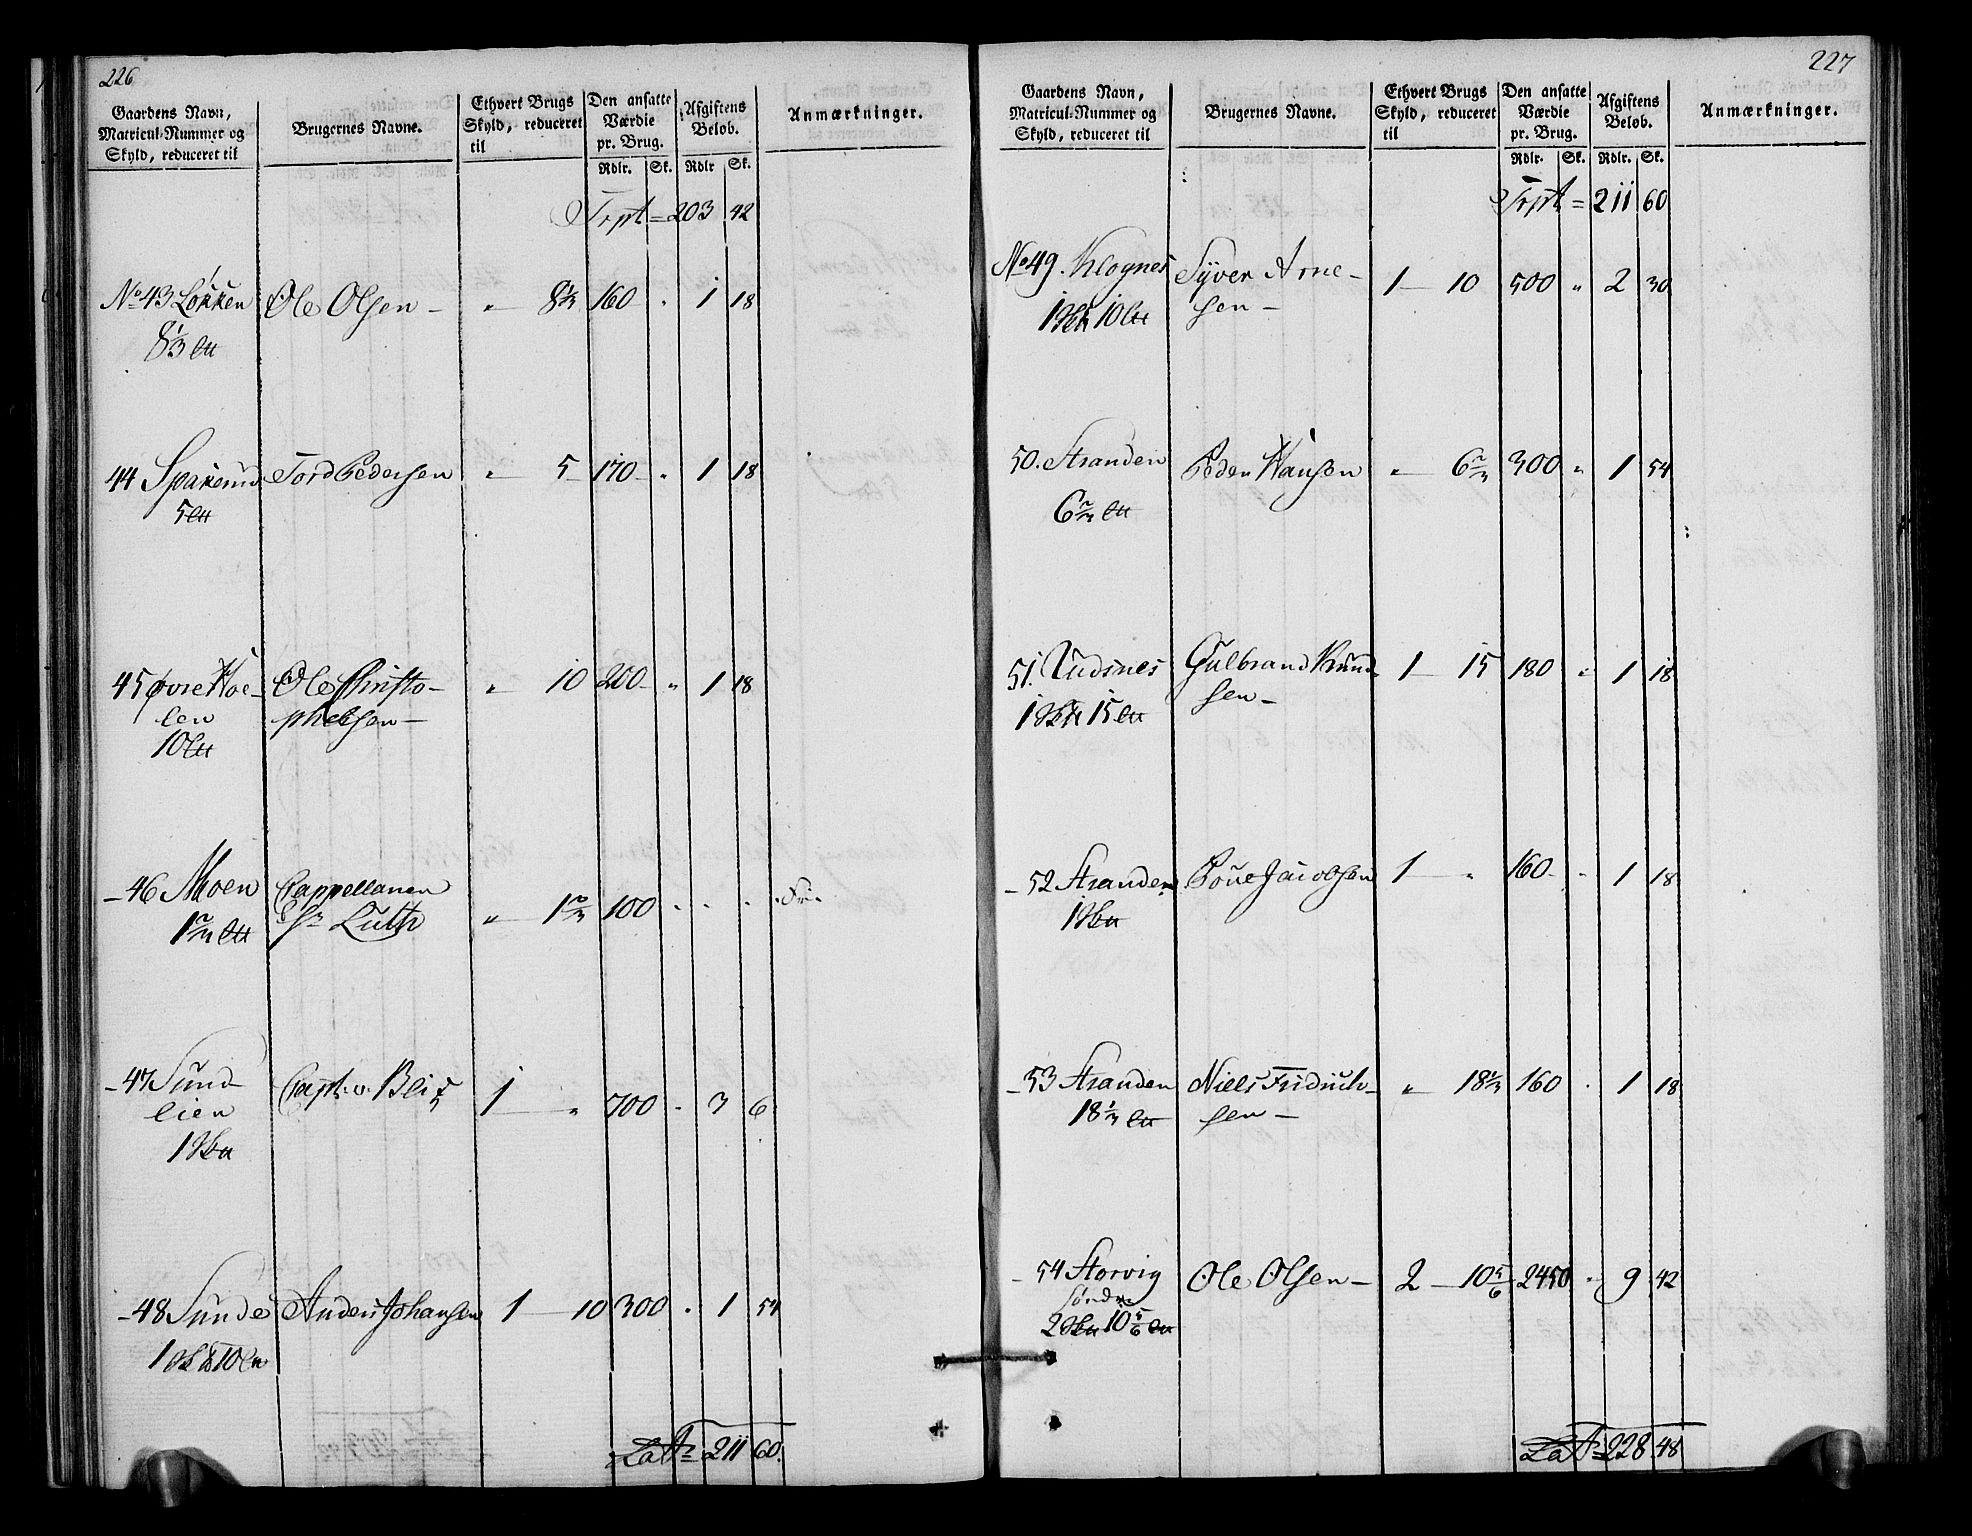 226
Gaardens Navn, Matricul-Nummer og Skyld, reduceret til | Brugernes Navne. | Ethvert Brugs Skyld, reduceret til | Den ansatte Værdie pr. Brug. Rdlr. Sk. | Afgiftens Beløb. Rdlr Sk. | Anmærkninger.
Trpt = 203 42
No 43 Løkken Ole Olsen – „ 8 1/3 160 „ 1 18
8 1/3 
44 Spakerud Tord Pedersen „ 5 170 „ 1 18
5
45 øvre Moe- Ole Christo- „ 10 200 „ 1 18
len phersen –
10
– 46 Moen Cappellanen „ 1 2/3 100 . . . Fri.
1 2/3 Hr Luth
– 47 Sund- Capt: v. Blix 1 „ 700 „ 3 6
lien
1
– 48 Sunde Anders Johansen 1 – 10 300 „ 1 54
1 10
Lat = 211 60.
227
Gaardens Navn, Matricul-Nummer og Skyld, reduceret til | Brugernes Navne. | Ethvert Brugs Skyld, reduceret til | Den ansatte Værdie pr. Brug. Rdlr. Sk. | Afgiftens Beløb. Rdlr. Sk. | Anmærkninger.
Trpt = 211 60
No 49. Klognes Syver Arne- 1 – 10 500 „ 2 30
1 10 sen –
50. Stranden Peder Hansen „ 6 2/3 300 „ 1 54
6 2/3
51. Gulbrand 1 – 15 180 „ 1 18
1 15 sen –
– 52 Stranden Poue Jacobsen 1 – „ 160 – „ 1 18
1
– 53 Stranden Niels Fridrich- „ 18 1/3 160 „ 1 18
18 1/3 sen –
– 54 Storvig Ole Olsen – 2 – 10 5/6 2450 „ 9 42
søndre
2 10 5/6
Lat = 228 48